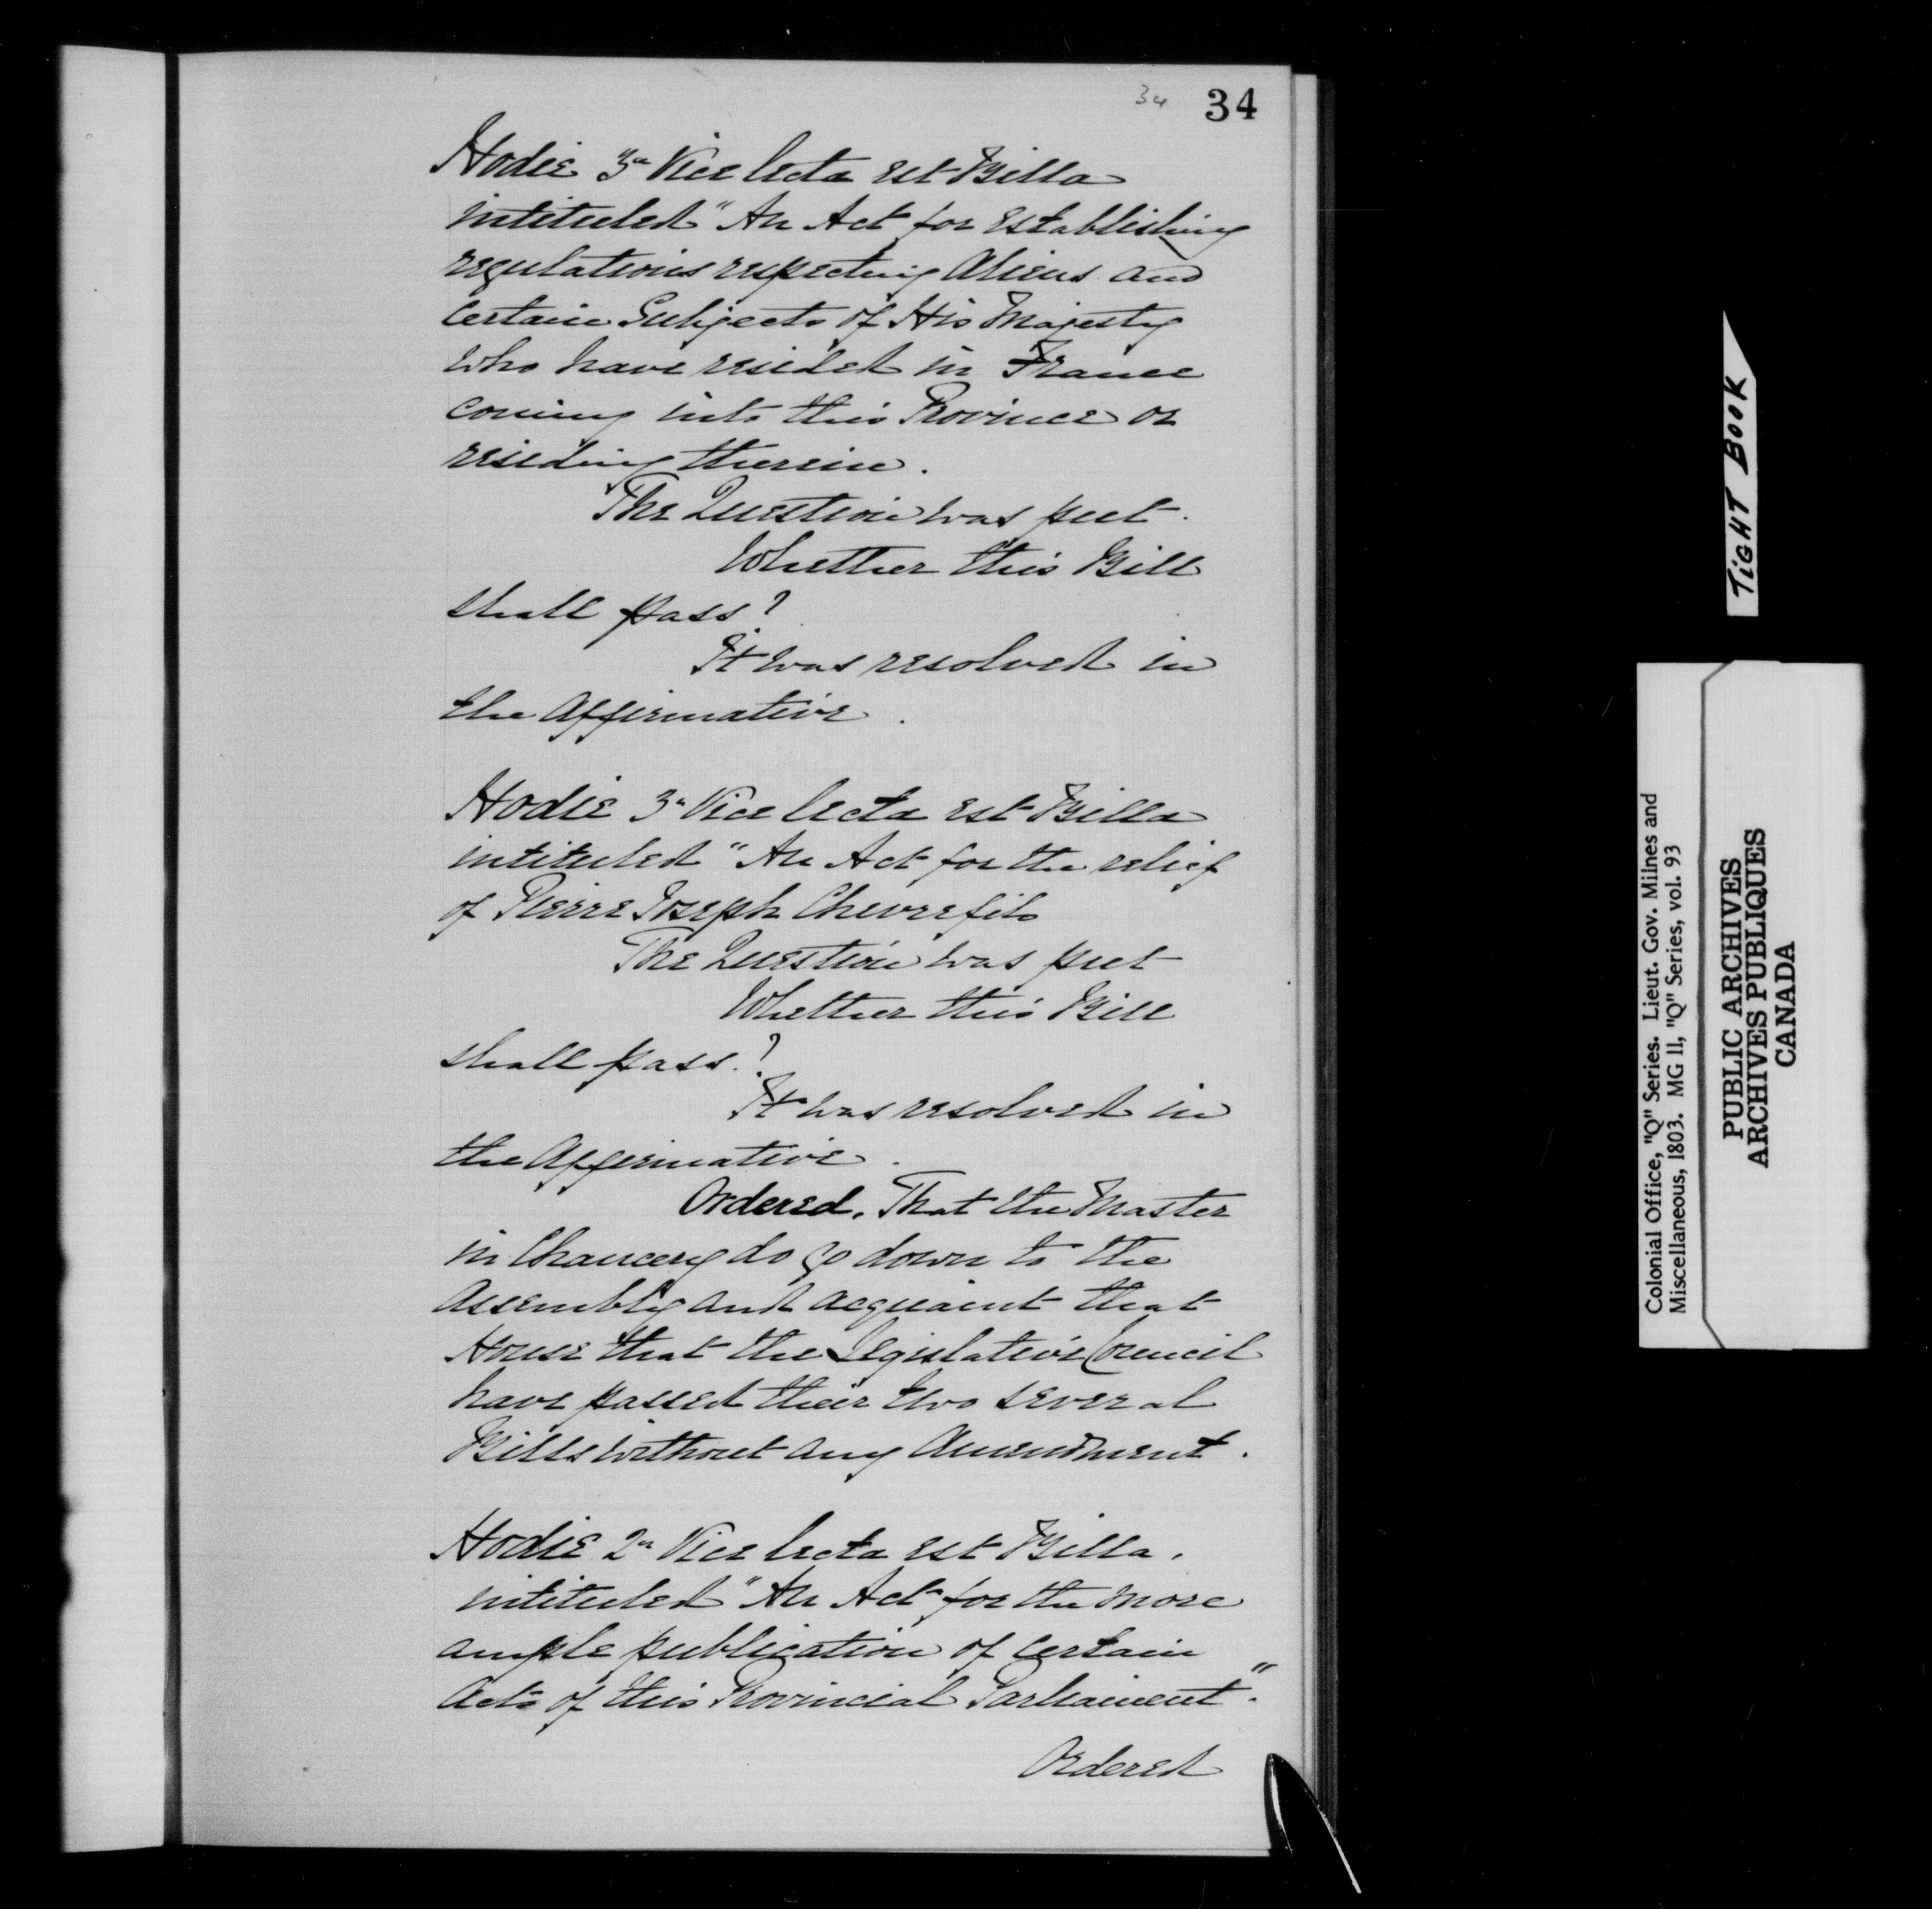 34 34
Hodie 3a Vice lecta est Billa
intituled "An Act for establishing
regulations respecting Aliens and
Certain Subjects of His Majesty
who have resided in France
coming into this Province or
residing therein.
The Question was put.
Whether this Bill
shall pass?
It was resolved in
the Affirmative.
Hodie 3a Vice lecta est Billa
intituled "An Act for the relief
of Pierre Joseph Chevrefils
The Question was put
Whether this Bill
shall pass?
It was resolved in
the Affirmative.
Ordered, That the Master
in Chancery do go down to the
Assembly and acquaint that
House that the Legislative Council
have passed their two several
Bills without any Amendment.
Hodie 2a Vice lecta est Billa.
intituled "An Act for the more
ample publication of certain
Acts of this Provincial Parliament."
Ordered
TIGHT BOOK
Colonial Office, "Q" Series. Lieut. Gov. Milnes and
Miscellaneous, 1803. MG 11, "Q" Series, vol. 93
PUBLIC ARCHIVES
ARCHIVES PUBLIQUES
CANADA